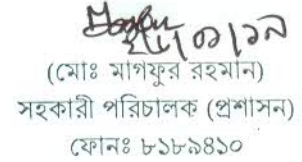 ২৮/০১/১৯
(মোঃ মাগফুর রহমান)
সহকারী পরিচালক (প্রশাসন)
ফোনঃ ৮১৮৯৪১০